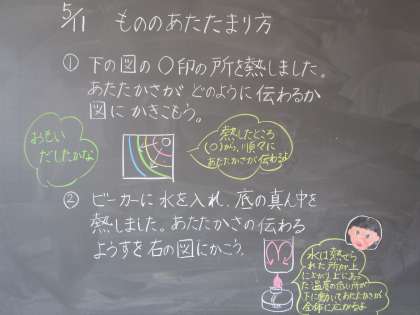 5/11 もののあたたまり方
① 下の図の○印の所を熱しました。
あたたかさがどのように伝わるか
図にかきこもう。
おもい
だしたかな
熱したところ
(○)から、順々に
あたたかさが伝わるよ
② ビーカーに水を入れ、底の真ん中を
熱しました。あたたかさの伝わる
ようすを右の図にかこう。
水は熱せら
れた所が上
に上がり上にあっ
た温度の低い所が
下に動いてあたたかさが
全体に広がるよ